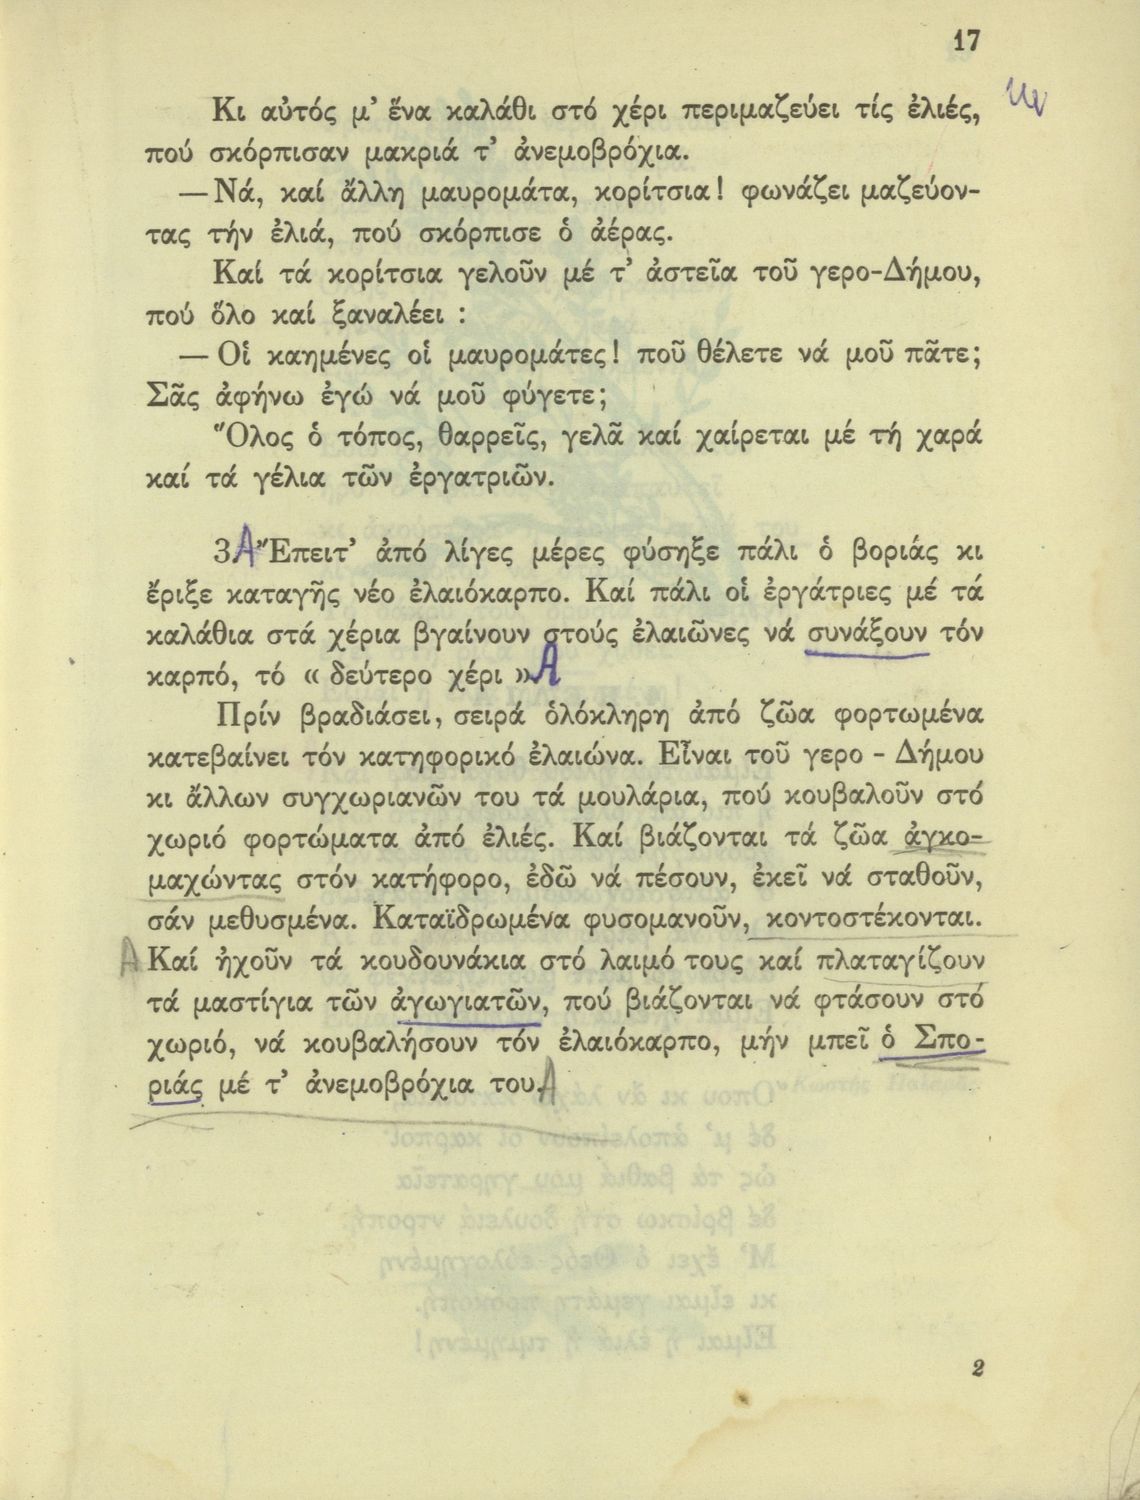 17
Κι αὐτός μ' ἕνα καλάθι στό χέρι περιμαζεύει τίς ἐλιές,
πού σκόρπισαν μακριά τ' ἀνεμοβρόχια.
— Νά, καί ἄλλη μαυρομάτα, κορίτσια! φωνάζει μαζεύον-
τας τήν ἐλιά, πού σκόρπισε ὁ ἀέρας.
Καί τά κορίτσια γελοῦν μέ τ' ἀστεῖα τοῦ γερο-Δήμου,
πού ὅλο καί ξαναλέει :
— Οἱ καημένες οἱ μαυρομάτες! ποῦ θέλετε νά μοῦ πᾶτε;
Σᾶς ἀφήνω ἐγώ νά μοῦ φύγετε;
Ὅλος ὁ τόπος, θαρρεῖς, γελᾶ καί χαίρεται μέ τή χαρά
καί τά γέλια τῶν ἐργατριῶν.
3 Α Ἔπειτ' ἀπό λίγες μέρες φύσηξε πάλι ὁ βοριάς κι
ἔριξε καταγῆς νέο ἐλαιόκαρπο. Καί πάλι οἱ ἐργάτριες μέ τά
καλάθια στά χέρια βγαίνουν στούς ἐλαιῶνες νά συνάξουν τόν
καρπό, τό « δεύτερο χέρι » Α
Πρίν βραδιάσει, σειρά ὁλόκληρη ἀπό ζῶα φορτωμένα
κατεβαίνει τόν κατηφορικό ἐλαιώνα. Εἶναι τοῦ γερο - Δήμου
κι ἄλλων συγχωριανῶν του τά μουλάρια, πού κουβαλοῦν στό
χωριό φορτώματα ἀπό ἐλιές. Καί βιάζονται τά ζῶα ἀγκο-
μαχώντας στόν κατήφορο, ἐδῶ νά πέσουν, ἐκεῖ νά σταθοῦν,
σάν μεθυσμένα. Καταϊδρωμένα φυσομανοῦν, κοντοστέκονται.
Α Καί ἠχοῦν τά κουδουνάκια στό λαιμό τους καί πλαταγίζουν
τά μαστίγια τῶν ἀγωγιατῶν, πού βιάζονται νά φτάσουν στό
χωριό, νά κουβαλήσουν τόν ἐλαιόκαρπο, μήν μπεῖ ὁ Σπο-
ριάς μέ τ' ἀνεμοβρόχια του. Α
2